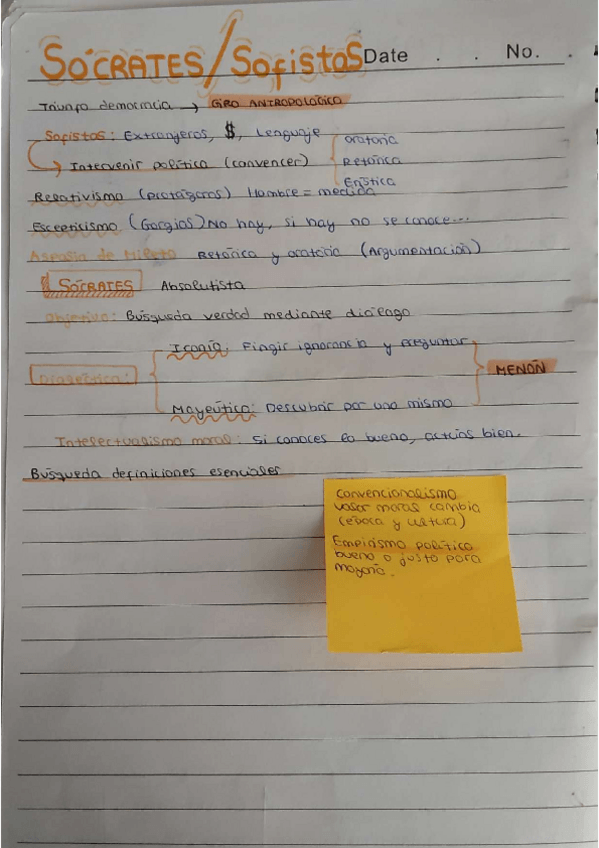 SÓCRATES/Sofistas Date . . No. .
Triunfo democracia → GIRO ANTROPOLÓGICO
Sofistas: Extrangeros, $, Lenguaje
Oratoria
Intervenir política (convencer)
Retórica
Erística
Relativismo (Protágoras) Hombre = medida
Escepticismo (Gorgias) No hay, si hay no se conoce...
Aspasia de Mileto Retórica y oratoria (Argumentación)
SÓCRATES Absolutista
Objetivo: Búsqueda verdad mediante diálogo
Ironía: Fingir ignorancia y preguntar
MENÓN
Mayeútica: Descubrir por uno mismo
Intelectualismo moral: Si conoces lo bueno, actúas bien.
Búsqueda definiciones esenciales
Convencionalismo
valor moral cambia
(época y cultura)
Empirismo político
bueno o justo para
mayoría.